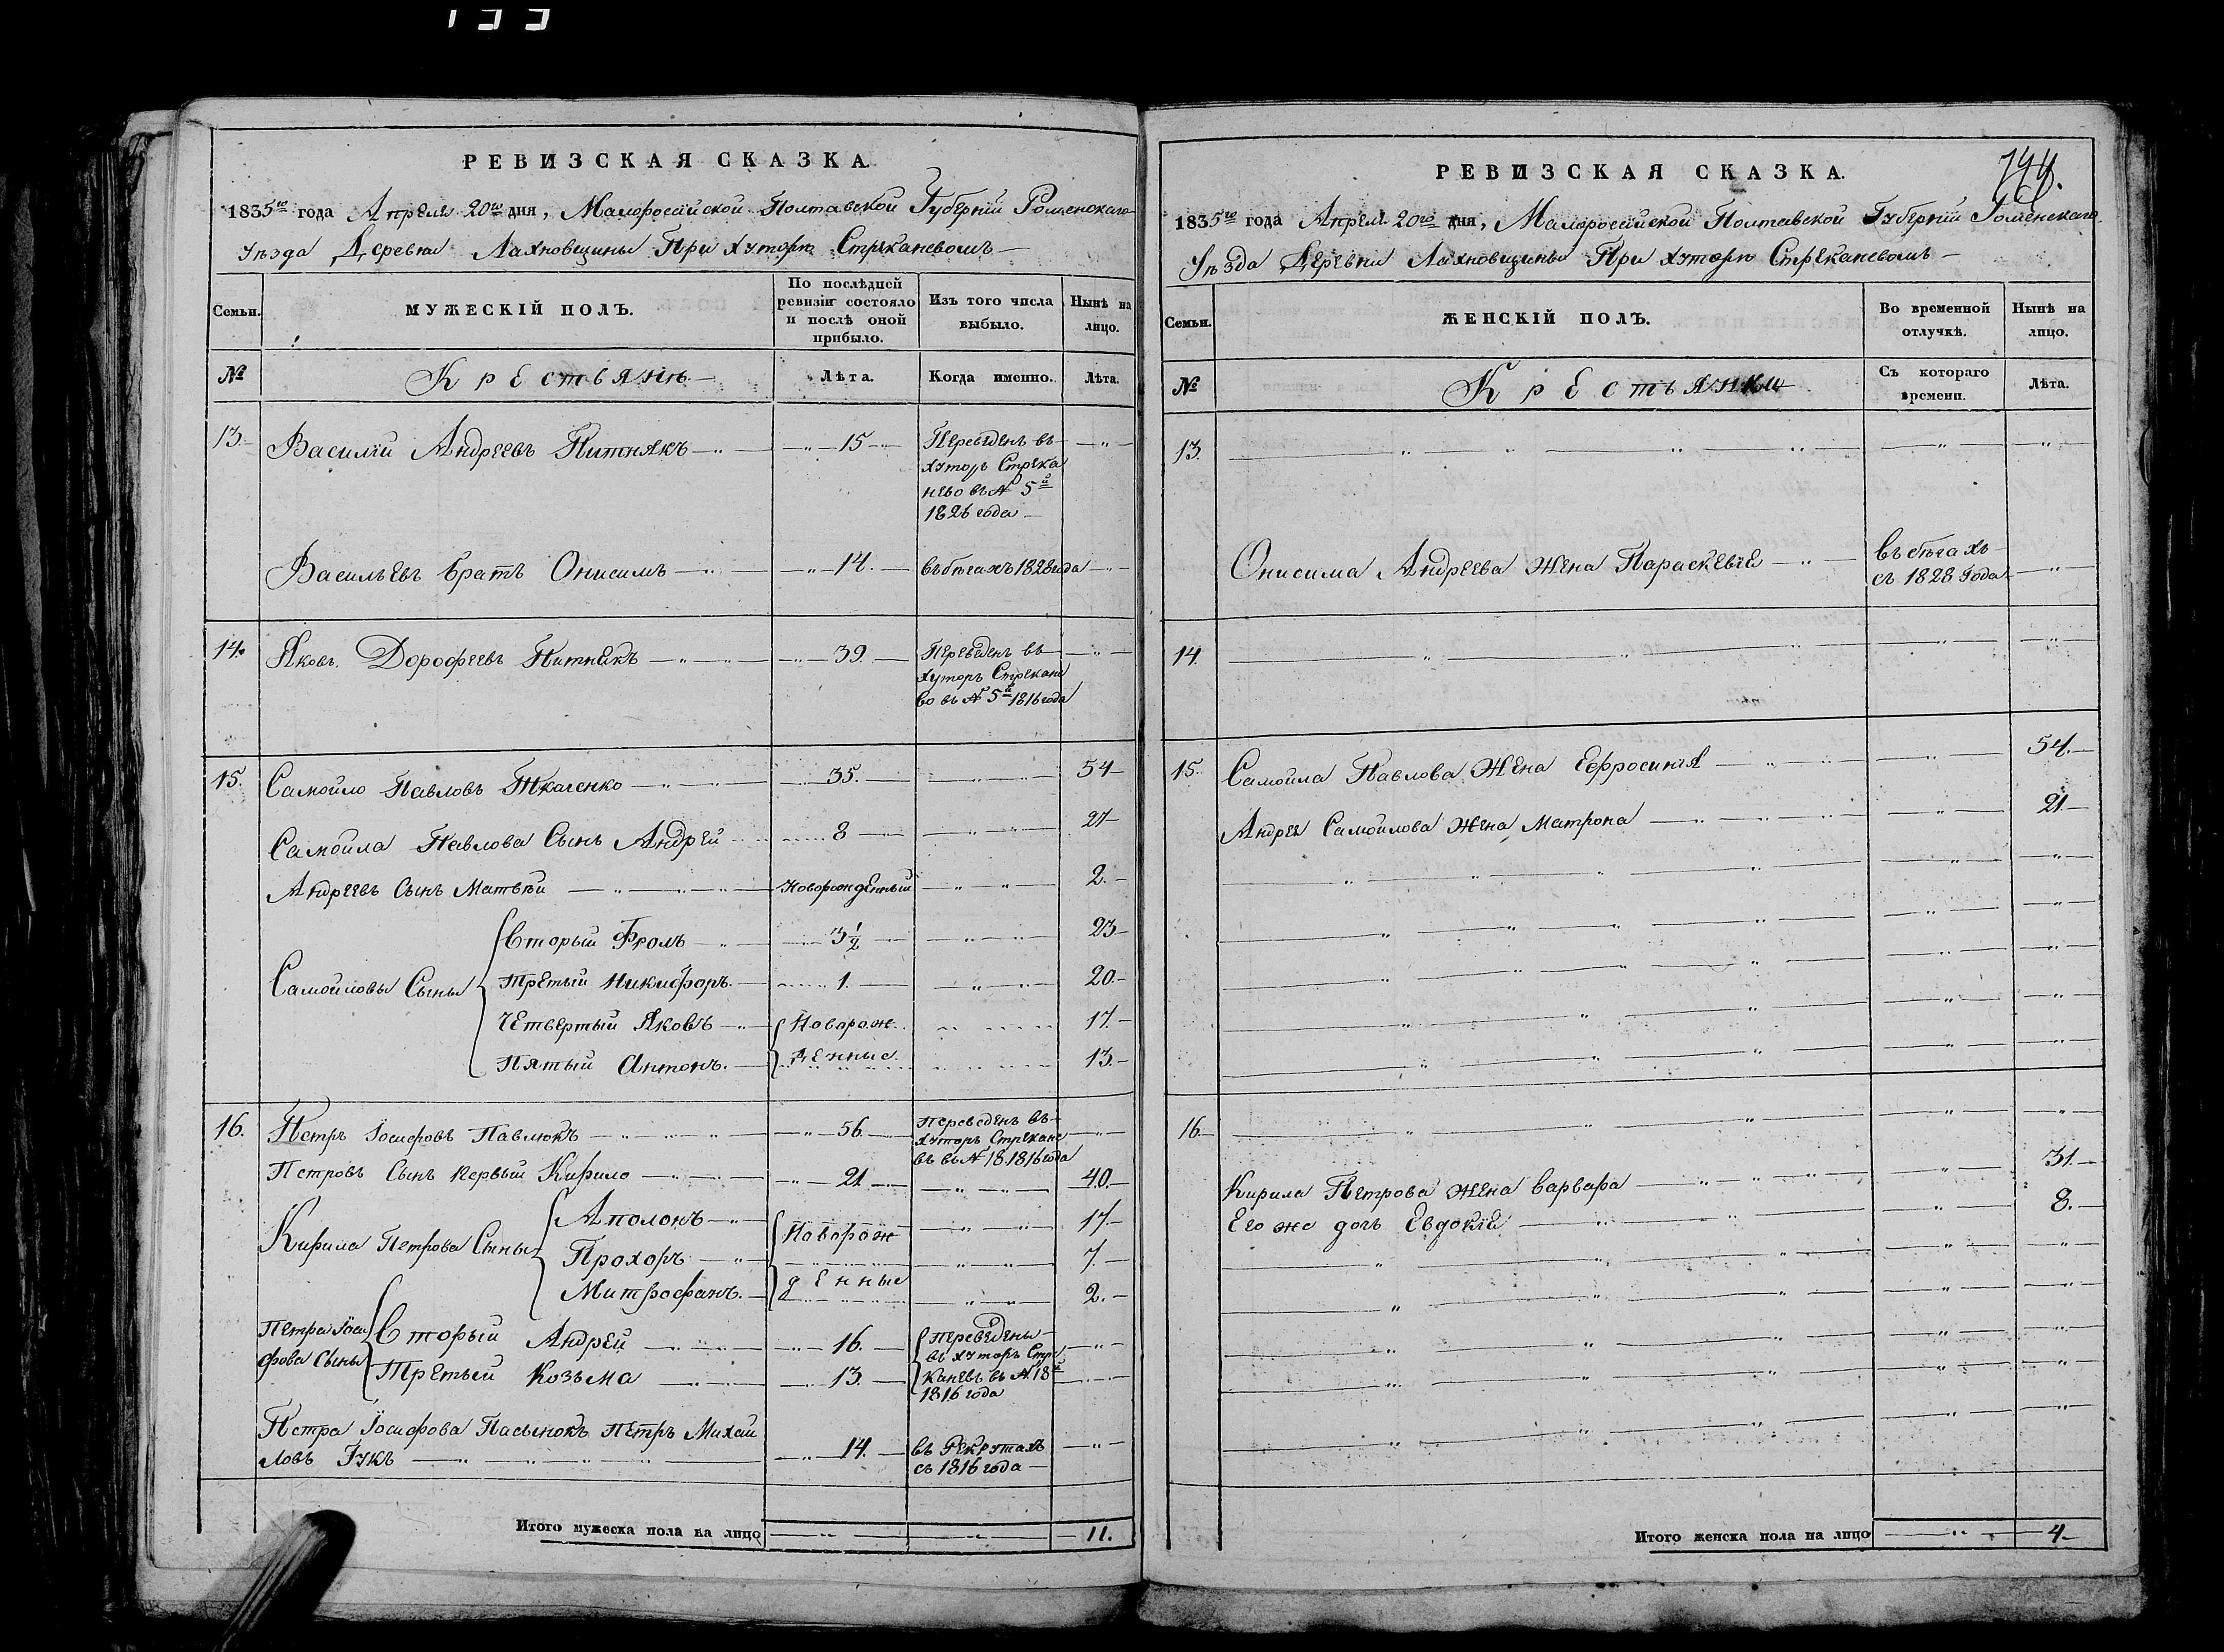 РЕВИЗСКАЯ СКАЗКА.
1835го года Апреля 20го дня, Малоросійской Полтавской Губерніи Роменскаго
Уѣзда Деревни Лахновщины При хуторѣ Стрѣканевомъ
Семьи.
МУЖЕСКІЙ ПОЛЪ.
По послѣдней ревизіи состояло и послѣ оной прибыло.
Изъ того числа выбыло.
Нынѣ на лицо.
№
Крестьянѣ
Лѣта.
Когда именно.
Лѣта.
13 Василій Андреевъ Питнякъ 15 Переведенъ въ
хуторъ Стрека
нево въ № 5й
1826 года
Васильевъ братъ Онисимъ 14. въ бѣгахъ 1828 года
14. Яковъ Дорофеевъ Питнякъ 39. Переведенъ въ
хуторъ Стрекане
во въ № 5й 1816 года
15. Самойло Павловъ Ткаченко 35. 54
Самойла Павлова Сынъ Андрей 8 27
Андреевъ Сынъ Матвѣй Новорожденный 2.
Самойловы Сыны
Вторый Фролъ 3½ 23
Третый Никифоръ. 1. 20.
Четвертый Яковъ Новорож 17.
Пятый Антонъ. денные. 13.
16. Петръ Іосифовъ Павлюкъ 56. Переведенъ въ
хуторъ Стрекане
въ въ № 18. 1816 года
Петровъ Сынъ первый Кирило 21 40.
Кирила Петрова Сыны
Аполонъ Новорож 17.
Прохоръ 7.
Митрофанъ. денные 2.
Петра Іоси
фова Сыны
Вторый Андрей 16. переведены
въ хуторъ Стре
Третый Козьма 13. каневъ въ № 18й
1816 года
Петра Іосифова Пасынокъ Петръ Михай
ловъ Гукъ 14. въ Рекрутахъ
съ 1816 года
Итого мужеска пола на лицо 11.
РЕВИЗСКАЯ СКАЗКА.
1835го года Апреля 20го дня, Малоросійской Полтавской Губерніи Роменскаго
Уѣзда Деревни Лахновщины При хуторѣ Стреканевомъ
Семьи.
ЖЕНСКІЙ ПОЛЪ.
Во временной отлучкѣ.
Нынѣ на лицо.
№
Крестьянки
Съ котораго времени.
Лѣта.
13.
Онисима Андреева жена Параскевія въ бѣгахъ
съ 1828 года
14.
15. Самойла Павлова Жена Ефросинія 54.
Андрея Самойлова Жена Матрона 21.
16.
Кирила Петрова жена Варвара 31.
Его же дочь Евдокія 8.
Итого женска пола на лицо 4